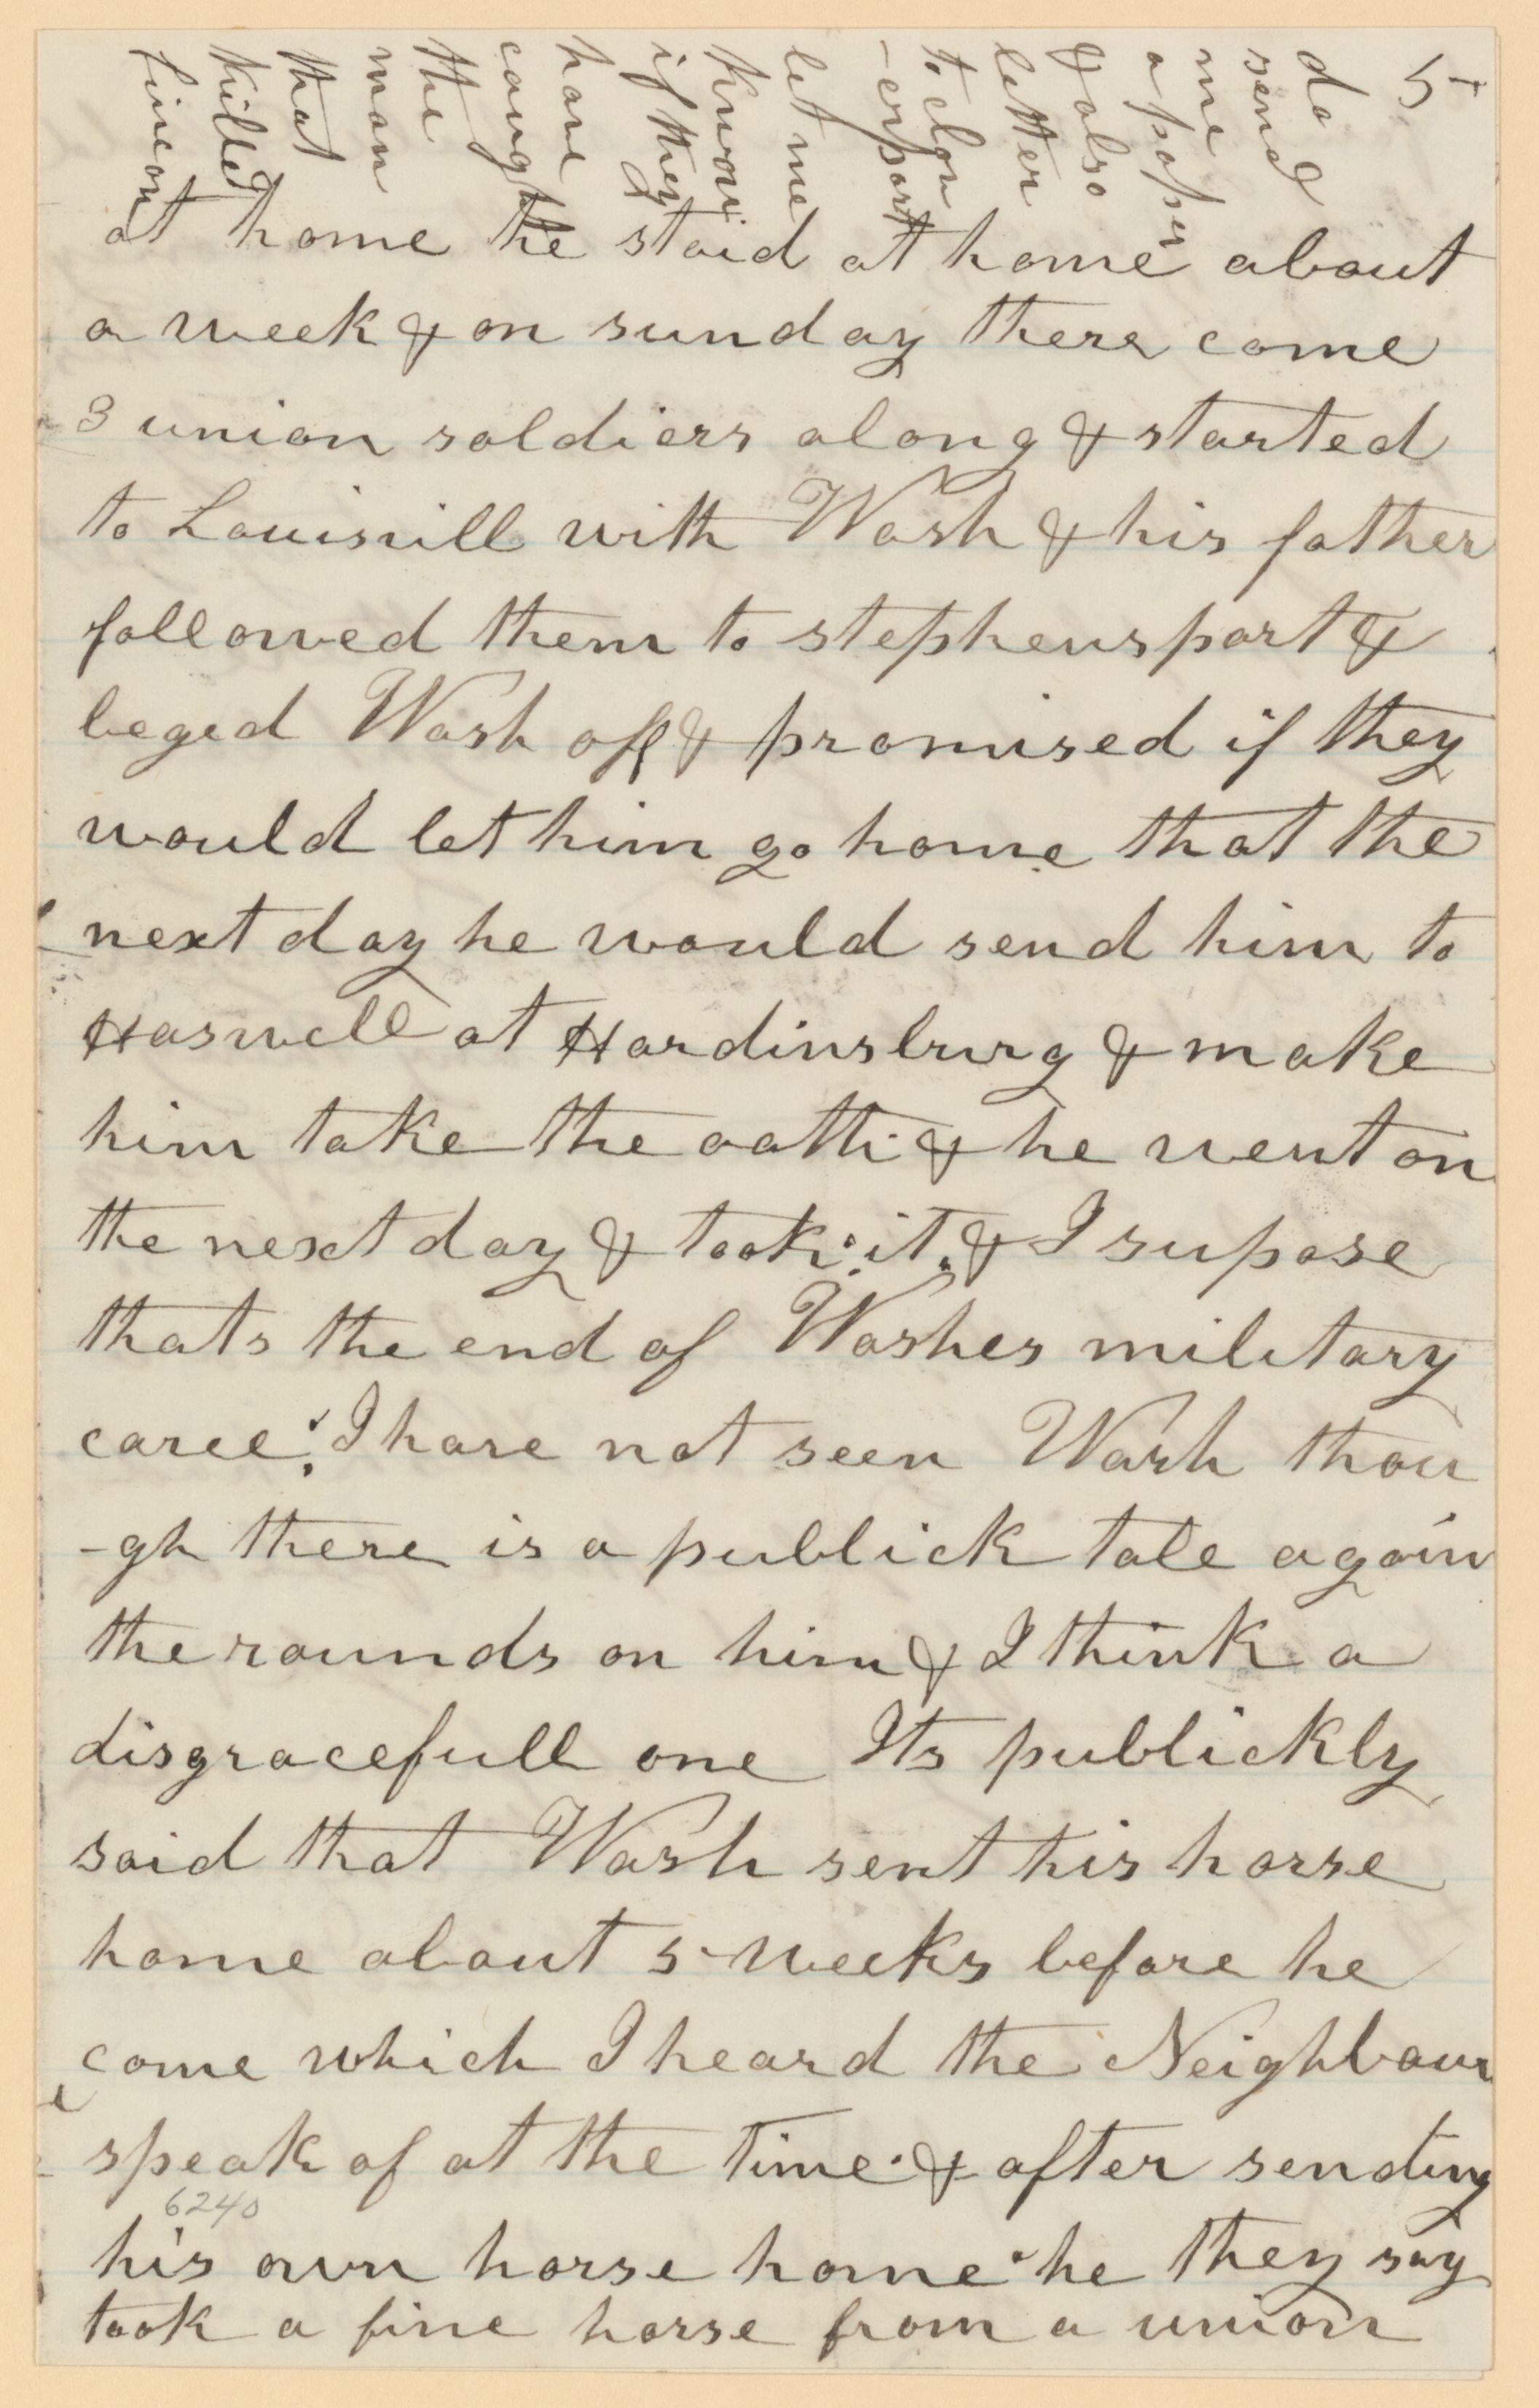 5
do
send
me
a paper
& also
letter
to clov
-erport
let me
know
if they
have
caught
the
man
that
killed
Lincon
at home he staid at home about
a week & on sunday there come
3 union soldiers along & started
to Louisvill with Wash & his father
followed them to stephensport &
beged Wash off & promised if they
would let him go home that the
next day he would send him to
Haswell at Hardinsburg & make
him take the oath & he went on
the next day & took it & I supose
thats the end of Washes military
caree. I have not seen Wash thou
-gh there is a publick tale again
the rounds on him & I think a
disgracefull one Its publickly
said that Wash sent his horse
home about 5 weeks before he
come which I heard the Neighbour
speak of at the time & after sending
6240
his own horse home he they say
took a fine horse from a union